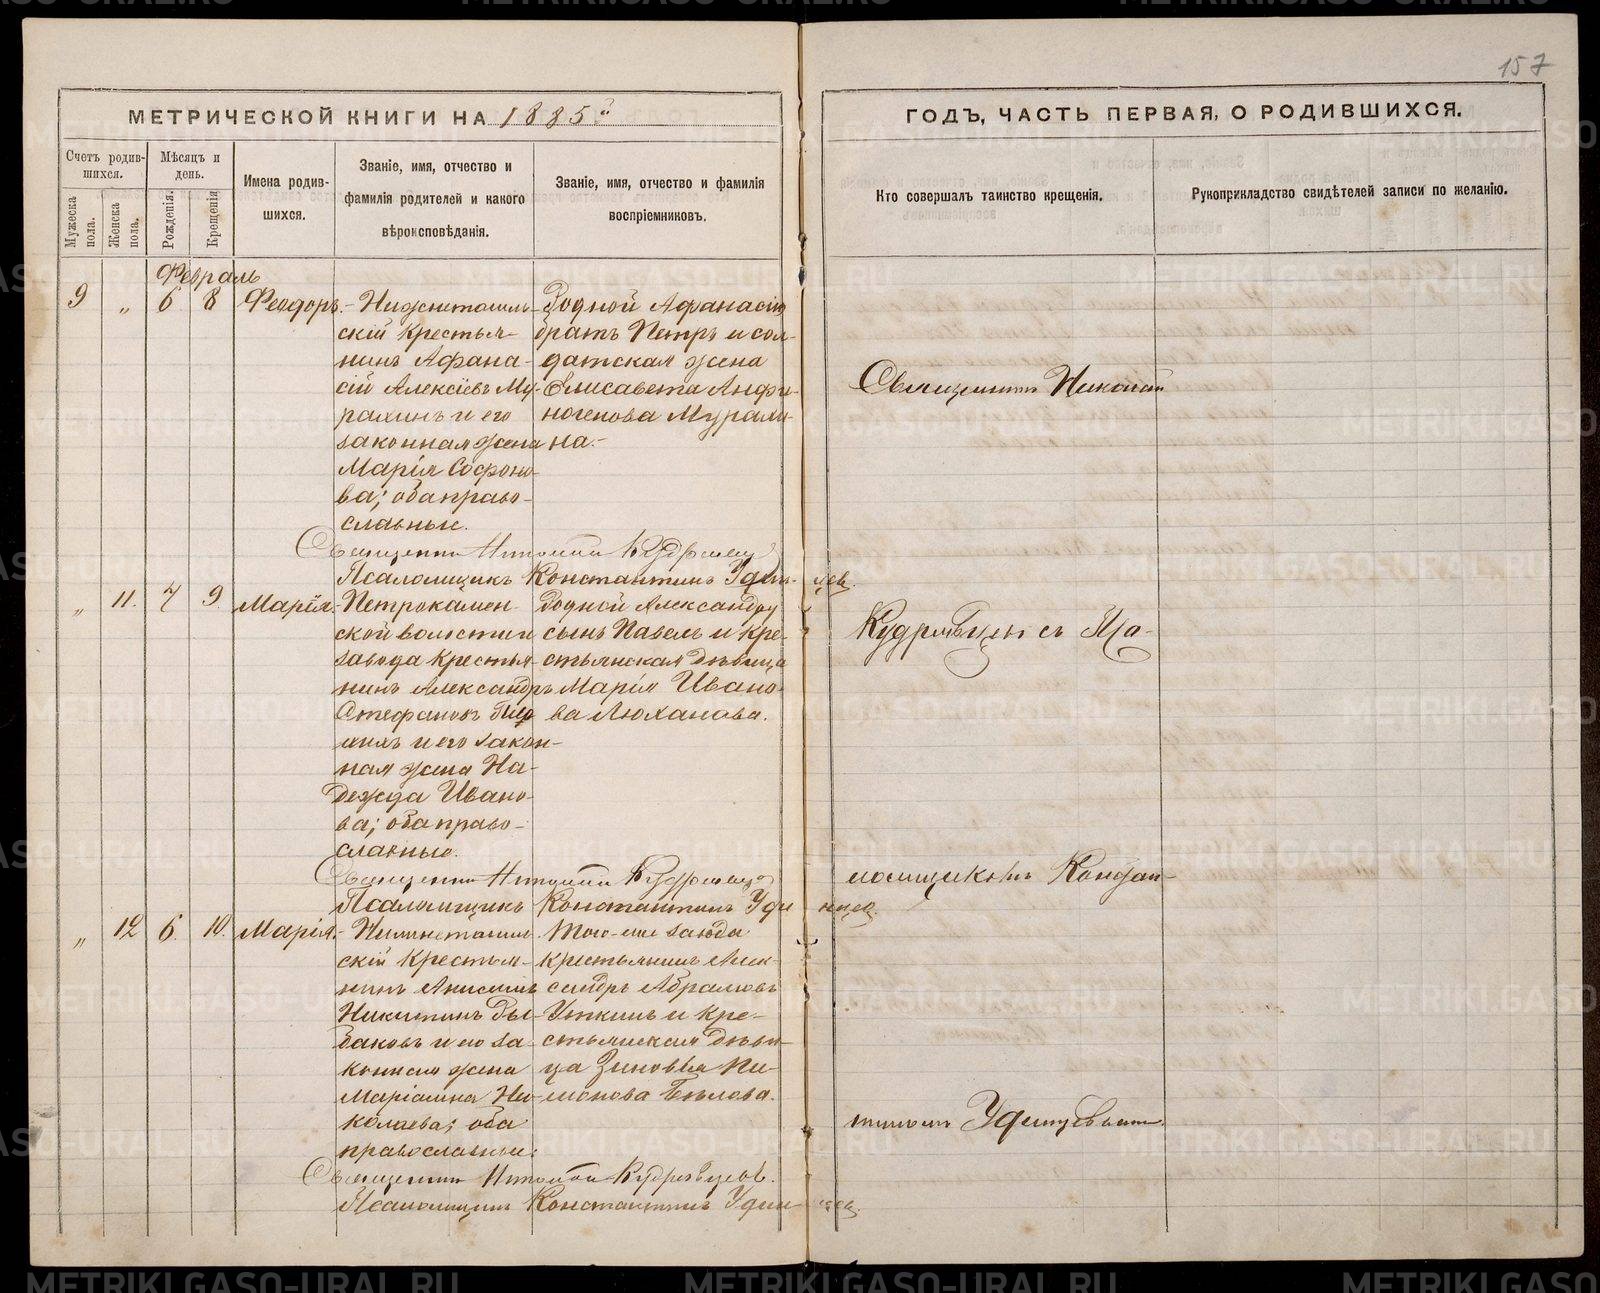 157
МЕТРИЧЕСКОЙ КНИГИ НА 1885й
ГОДЪ, ЧАСТЬ ПЕРВАЯ, О РОДИВШИХСЯ.
Счетъ родив-
шихся.
Мужеска пола.
Женска пола.
Мѣсяцъ и
день.
Рожденія.
Крещенія
Имена родив-
шихся.
Званіе, имя, отчество и
фамилія родителей и какого
вѣроисповѣданія.
Званіе, имя, отчество и фамилія
воспріемниковъ.
Кто совершалъ таинство крещенія.
Рукоприкладство свидѣтелей записи по желанію.
Февраль
9 „ 6 8 Феодоръ.
Нижнетагиль-
скій крестья-
нинъ Афана-
сій Алексіевъ Му-
рахинъ и его
законная жена
Марія Софоно-
ва; оба право-
славные.
Родной Афанасію
братъ Петръ и сол-
датская жена
Елисавета Анфи-
ногенова Мурахи-
на.
Священникъ Николай Кудрявцевъ
Псаломщикъ Константинъ Удинцев.
„ 11. 7 9. Марія.
Петрокамен-
ской волости и
завода крестья-
нинъ Александръ
Стефановъ
и его закон-
ная жена На-
дежда Ивано-
ва; оба право-
славные.
Родной Александру
сынъ Павелъ и кре-
стьянская дѣвица
Марія Ивано-
ва Люханова.
Священникъ Николай Кудрявцев
Псаломщикъ Константинъ Удинцев.
„ 12 6. 10. Марія.
Нижнетагиль-
скій крестья-
нинъ Анисимъ
Никитинъ Ры-
баковъ и его за-
конная жена
Маріамна Ни-
колаева; оба
православные.
Того-же завода
крестьянинъ Алек-
сандръ Абрамовъ
Уткинъ и кре-
стьянская дѣви-
ца Зиновья Пи-
монова Бѣлова.
Священникъ Николай Кудрявцевъ.
Псаломщикъ Константинъ Удинцев.
Священникъ Николай
Кудрявцевъ съ Пса-
ломщикомъ Констан-
тиномъ Удинцевымъ.
METRIKI.GASO-URAL.RU